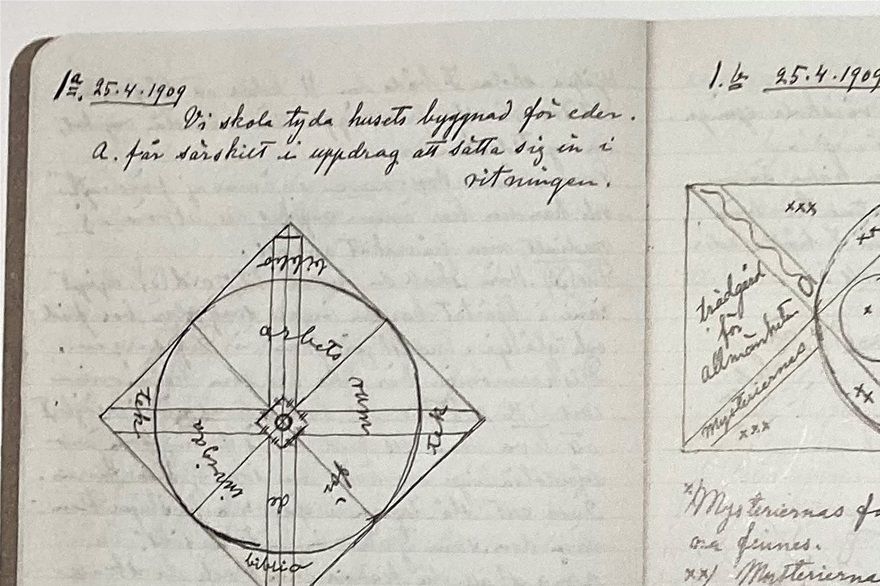 1a. 25.4.1909
Vi skola tyda husets byggnad för eder.
A. får särskilt i uppdrag att sätta sig in i
ritningen.
biblio
arbets
rum
för
de
invigda
tek
biblio
tek
1.b 25.4.1909
xxx
trädgård
för
allmänheten
Mysteriernas
xxx
xx
x
xx
x/Mysteriernas
na finnes.
xx/ Mysteriernas